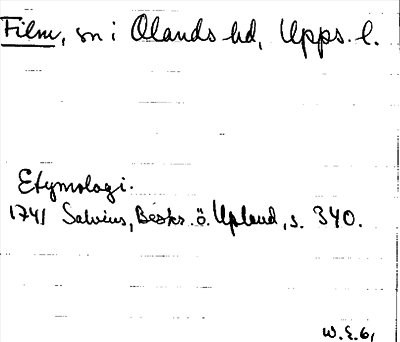 Film, sn i Olands hd, Upps. l.
Etymologi.
1741 Salvius, Beskr. ö. Upland, s. 340.
W.E.61